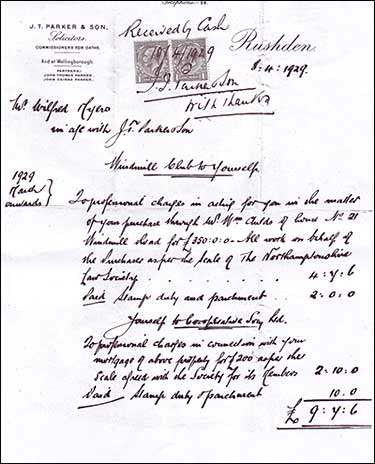 Telephone 28.
J. T. PARKER & SON,
Solicitors.
COMMISSIONERS FOR OATHS.
And at Wellingborough.
PARTNERS:
JOHN THOMAS PARKER.
Received by Cash
10/4/1929
J. T. Parker & Son
With thanks
Rushden.
8: 4: 1929.
Mr Wilfred
in a/c with J. T. Parker & Son
Windmill Club to Yourself
1929
March
onwards
To professional charges in acting for you in the matter
of your purchase through Mr Wm Childs of house No 21
Windmill Road for £350:0:0 - All work on behalf of
the Purchaser as per the Scale of The Northamptonshire
Law Society . . . . . . 4: 7: 6
Paid Stamp duty and parchment . . 2: 0: 0
Yourself to Cooperative Socy Ltd.
To professional charges in connection with your
mortgage of above property for £200 as per the
Scale agreed with the Society for its Members 2: 10: 0
Paid Stamp duty & parchment 10. 0
£ 9: 7: 6